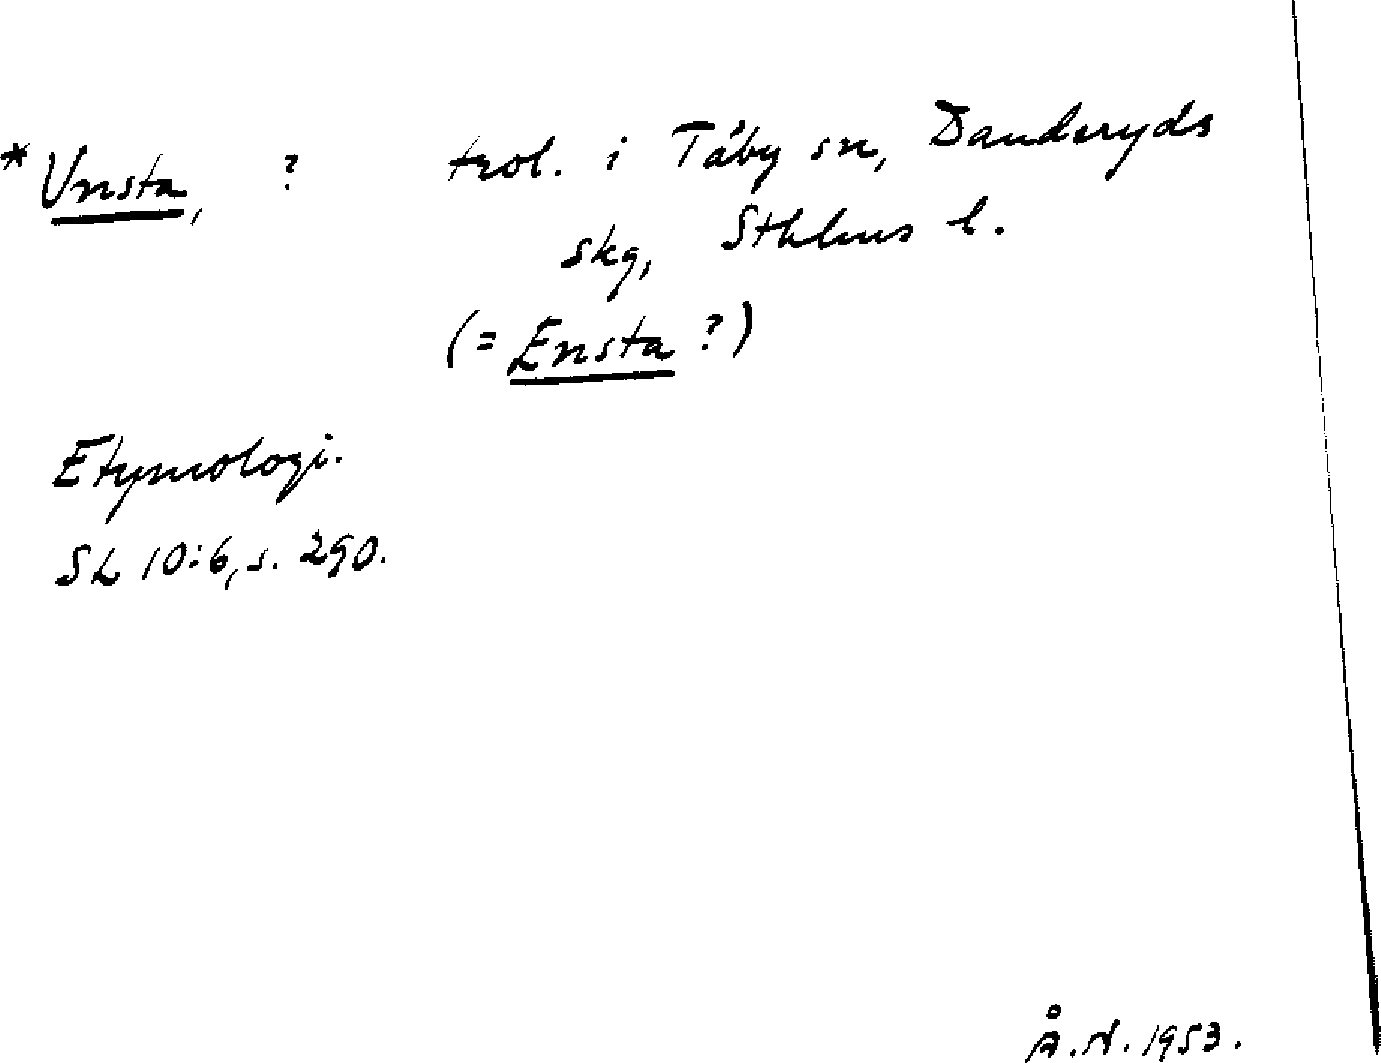 *Vnsta, ? trol. i Täby sn, Danderyds
skg, Sthlms l.
(= Ensta ?)
Etymologi.
SL 10:6, s. 290.
Å.N. 1953.